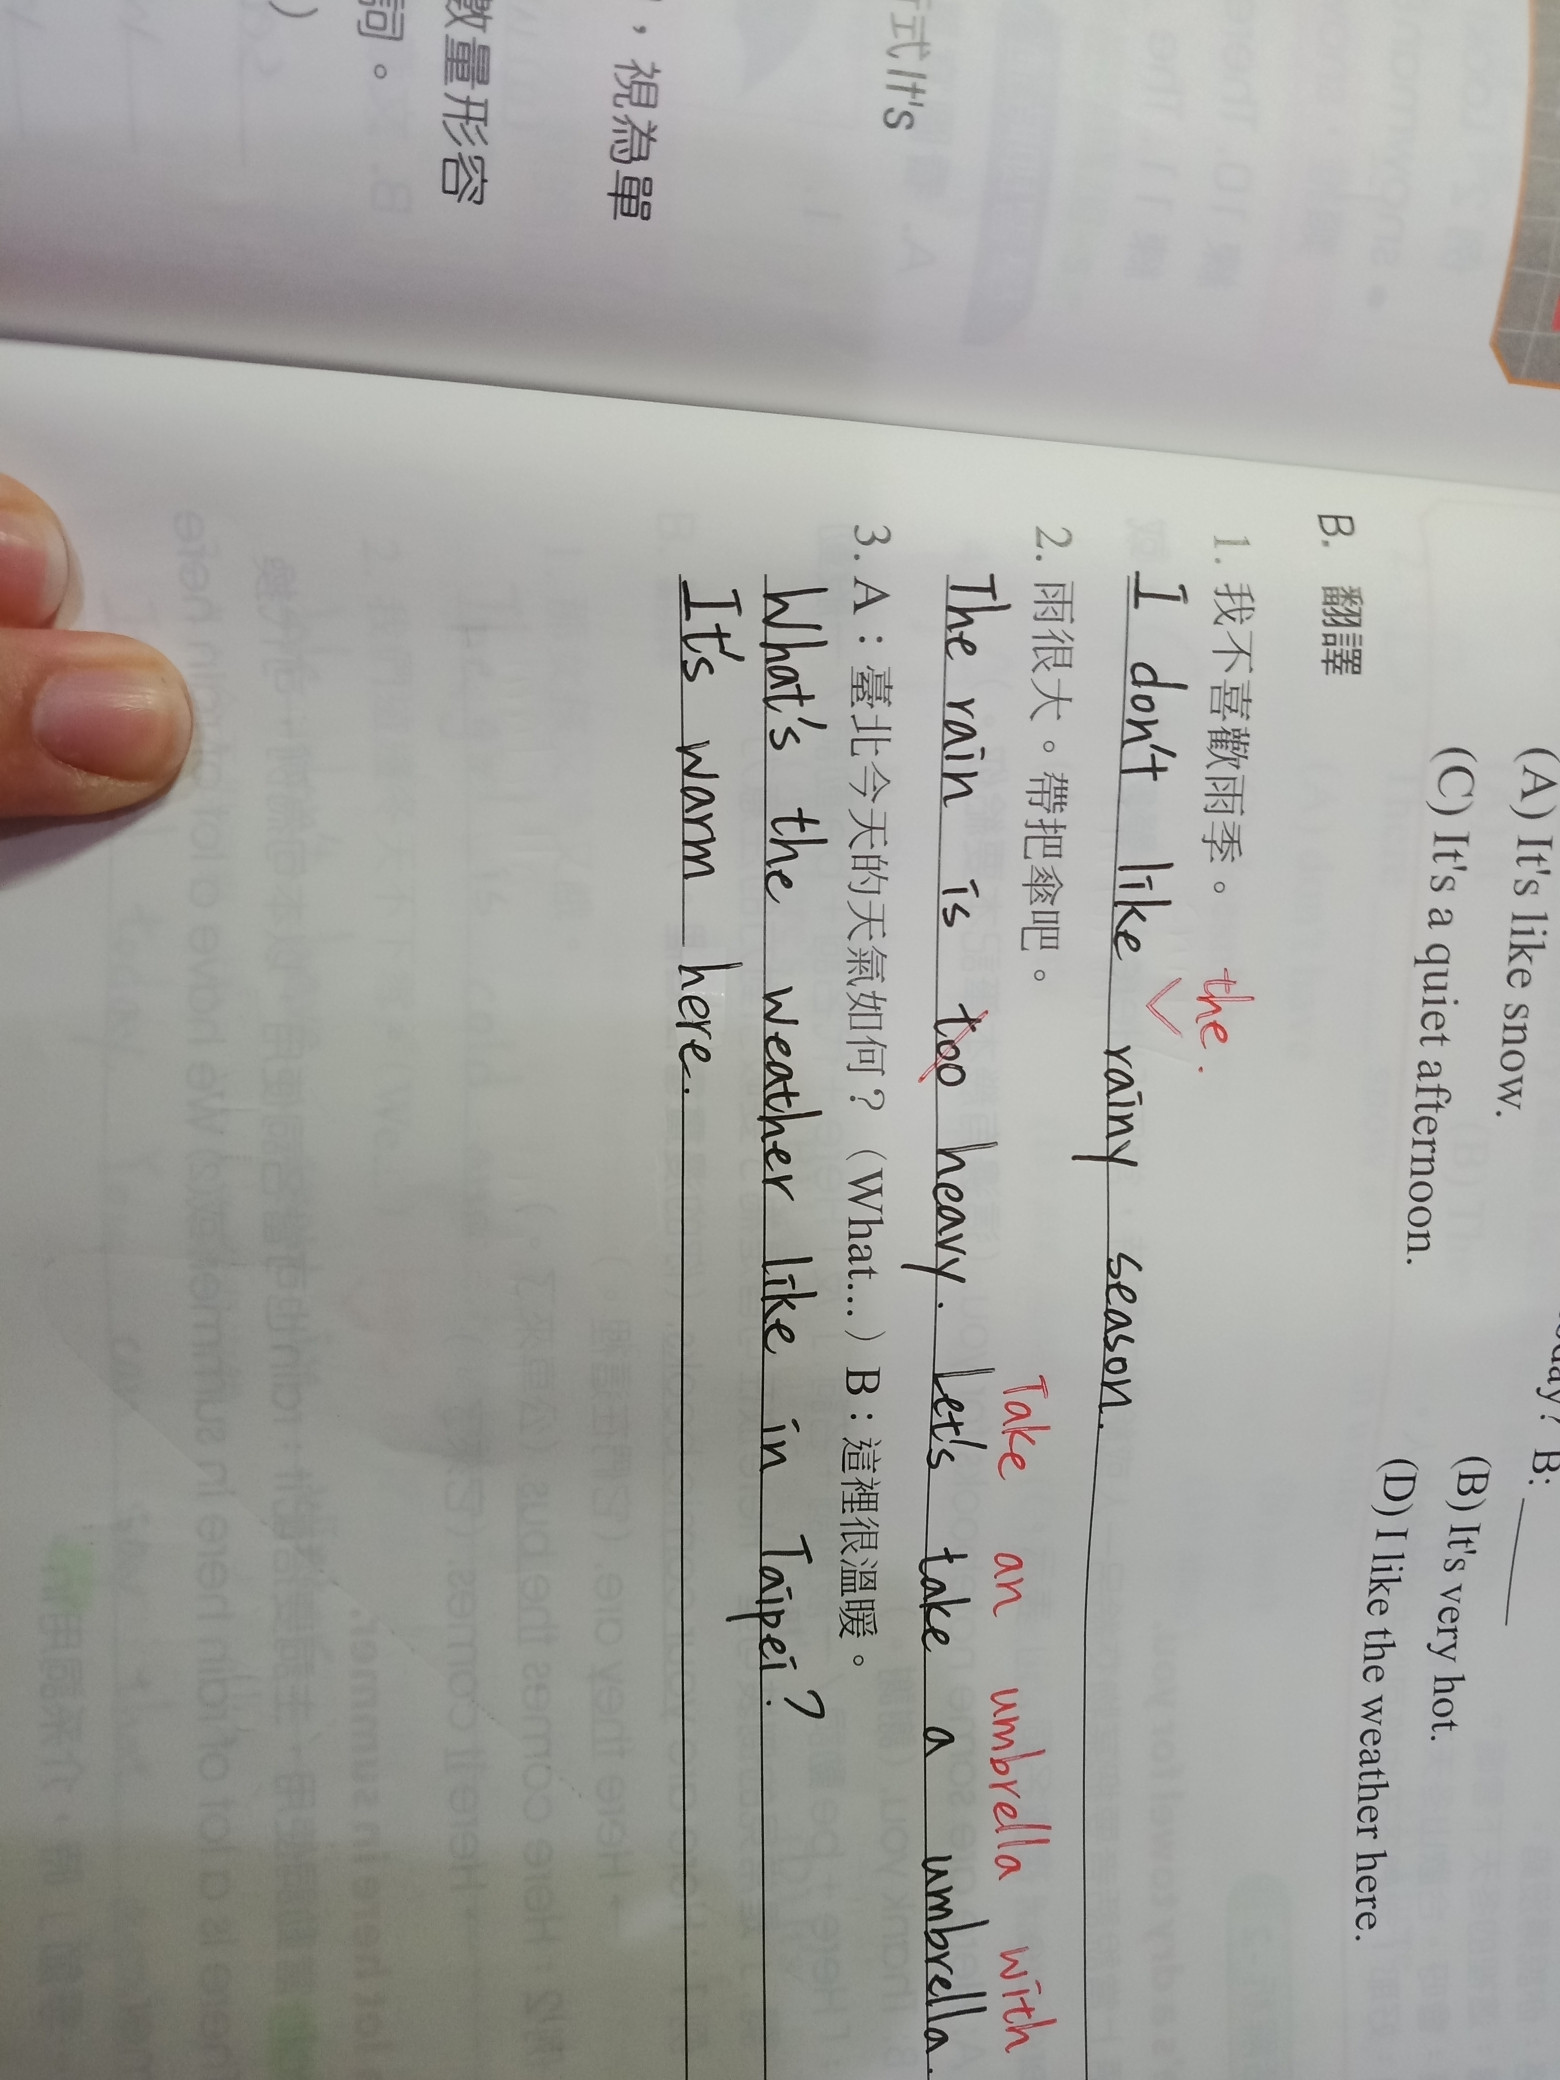 式It's
，視為單
數量形容
詞。
)
B:
(A) It's like snow.
(B) It's very hot.
(C) It's a quiet afternoon.
(D) I like the weather here.
B. 翻譯
1. 我不喜歡雨季。
the.
I don't like rainy season.
2. 雨很大。帶把傘吧。
Take an umbrella with
The rain is too heavy. Let's take a umbrella.
3. A：臺北今天的天氣如何？（What...）B：這裡很溫暖。
What's the weather like in Taipei?
It's warm here.